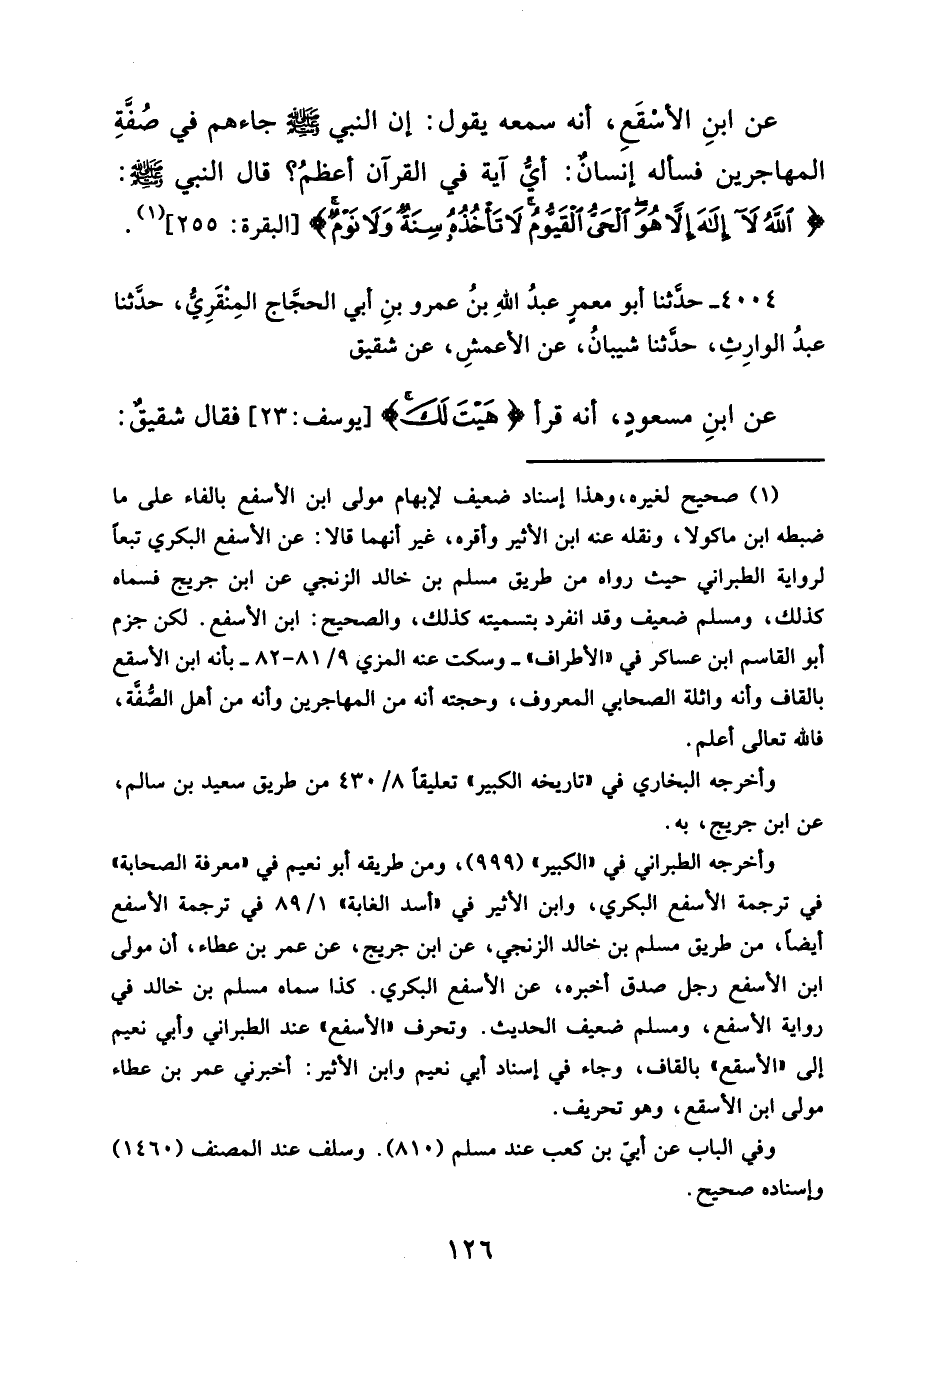 عن ابنِ الأسْقَعِ، أنه سمعه يقول: إن النبي ﷺ جاءهم في صُفَّةِ
المهاجرين فسأله إنسانٌ: أيُّ آية في القرآن أعظمُ؟ قال النبي ﷺ:
﴿ ٱللَّهُ لَآ إِلَٰهَ إِلَّا هُوَ ٱلْحَىُّ ٱلْقَيُّومُ ۚ لَا تَأْخُذُهُۥ سِنَةٌ وَلَا نَوْمٌ ۚ﴾ [البقرة: ٢٥٥](١).
٤٠٠٤ـ حدَّثنا أبو معمرٍ عبدُ اللهِ بنُ عمرو بنِ أبي الحجَّاج المِنْقَرِيُّ، حدَّثنا
عبدُ الوارِثِ، حدَّثنا شيبانُ، عن الأعمشِ، عن شقيق
عن ابنِ مسعودٍ، أنه قرأ ﴿ هَيْتَ لَكَ ۚ﴾ [يوسف: ٢٣] فقال شقيقٌ:
(١) صحيح لغيره،وهذا إسناد ضعيف لإبهام مولى ابن الأسفع بالفاء على ما
ضبطه ابن ماكولا، ونقله عنه ابن الأثير وأقره، غير أنهما قالا: عن الأسفع البكري تبعاً
لرواية الطبراني حيث رواه من طريق مسلم بن خالد الزنجي عن ابن جريج فسماه
كذلك، ومسلم ضعيف وقد انفرد بتسميته كذلك، والصحيح: ابن الأسفع. لكن جزم
أبو القاسم ابن عساكر في «الأطراف» ـ وسكت عنه المزي ٩/ ٨١–٨٢ ـ بأنه ابن الأسقع
بالقاف وأنه واثلة الصحابي المعروف، وحجته أنه من المهاجرين وأنه من أهل الصُّفَّة،
فالله تعالى أعلم.
وأخرجه البخاري في «تاريخه الكبير» تعليقاً ٨/ ٤٣٠ من طريق سعيد بن سالم،
عن ابن جريج، به.
وأخرجه الطبراني في «الكبير» (٩٩٩)، ومن طريقه أبو نعيم في «معرفة الصحابة»
في ترجمة الأسفع البكري، وابن الأثير في «أسد الغابة» ١/ ٨٩ في ترجمة الأسفع
أيضاً، من طريق مسلم بن خالد الزنجي، عن ابن جريج، عن عمر بن عطاء، أن مولى
ابن الأسفع رجل صدق أخبره، عن الأسفع البكري. كذا سماه مسلم بن خالد في
رواية الأسفع، ومسلم ضعيف الحديث. وتحرف «الأسفع» عند الطبراني وأبي نعيم
إلى «الأسقع» بالقاف، وجاء في إسناد أبي نعيم وابن الأثير: أخبرني عمر بن عطاء
مولى ابن الأسقع، وهو تحريف.
وفي الباب عن أبيّ بن كعب عند مسلم (٨١٠). وسلف عند المصنف (١٤٦٠)
وإسناده صحيح.
١٢٦